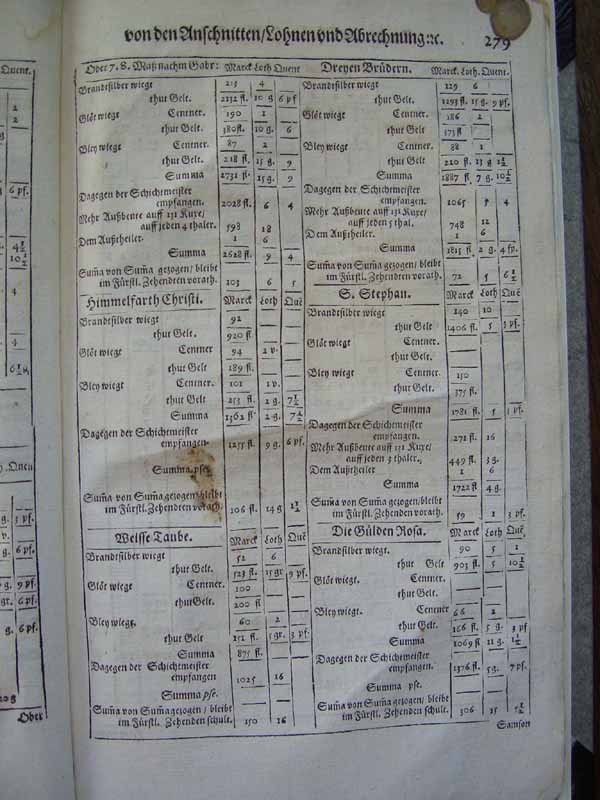 von den Anschnitten/Lohnen vnd Abrechnung ꝛc. 279
Ober 7. 8. Maß nachm Gabr: Marck Loth Quent
Brandtsilber wiegt 215 4
thut Gelt. 2152 fl. 10 g 6 pf
Glöt wiegt Centner. 190 1
thut Gelt. 380 fl. 10 g. 6
Bley wiegt Centner. 87 2
thut Gelt. 218 fl. 15 g. 9
Summa 2731 fl. 15 g. 9
Dagegen der Schichtmeister
empfangen. 2028 fl. 6 4
Mehr Außbeute auff 131 Kuxe/
auff jeden 4 thaler. 598 18
Dem Außtheiler. 1 6
Summa 2628 fl. 9 4
Suma von Suma gezogen/ bleibt
im Fürstl. Zehendten vorath. 103 6 5
Himmelfarth Christi. Marck Loth Que
Brandtsilber wiegt 92
thut Gelt. 920 fl.
Glöt wiegt Centner 94 2 v.
thut Gelt 189 fl.
Bley wiegt Centner. 101 1 v.
thut Gelt. 253 fl. 2 g. 7½
Summa 1362 fl. 2 g. 7½
Dagegen der Schichtmeister
empfangen. 1255 fl. 9 g. 6 pf.
Summa pse.
Suma von Suma gezogen/ bleibt
im Fürstl. Zehendten vorath. 106 fl. 14 g 1½
Weisse Taube. Marck Loth Que
Brandtsilber wiegt 52 6
thut Gelt. 523 fl. 15 gr 9 pf.
Glöt wiegt Centner. 100
thut Gelt. 200 fl
Bley wiegt. 60 2
thut Gelt 151 fl. 5 gr. 3 pf.
Summa 875 fl.
Dagegen der Schichtmeister
empfangen 1025 16
Summa pse.
Suma von Suma gezogen/ bleibt
im Fürstl. Zehenden schult. 150 16
Ober
Dreyen Brüdern. Marck. Loth. Quent.
Brandtsilber wiegt 129 6
thut Gelt. 1293 fl. 15 g. 9 pf.
Glöt wiegt Centner. 186 2
thut Gelt. 373 fl
Bley wiegt Centner. 88 1
thut Gelt. 220 fl. 13 g 1½
Summa 1887 fl. 7 g. 10½
Dagegen der Schichtmeister
empfangen. 1065 4
Mehr Außbeute auff 131 Kuxe/
auff jeden 5 thal. 748 12
Dem Außtheiler. 1 6
Summa 1815 fl. 2 g. 4 pf.
Suma von Suma gezogen/ bleibt
im Fürstl. Zehendten vorath. 72 5 6½
S. Stephan. Marck Loth Que
Brandtsilber wiegt 140 10
thut Gelt 1406 fl. 5 3 pf.
Glöt wiegt Centner.
thut Gelt.
Bley wiegt Centner. 150
thut Gelt. 375 fl.
Summa 1781 fl. 5 3 pf.
Dagegen der Schichtmeister
empfangen. 1271 fl. 16
Mehr Außbeute auff 131 Kuxe/
auff jeden 3 thaler. 449 fl. 3 g.
Dem Außtheiler 1 6
Summa 1722 fl 4 g.
Suma von Suma gezogen/ bleibt
im Fürstl. Zehenden vorath. 59 1 3 pf.
Die Gülden Rosa. Marck Loth Que
Brandtsilber wiegt. 90 5 1
thut Gelt 903 fl. 5 10½
Glöt wiegt Centner.
thut Gelt.
Bley wiegt. Centner 66 2
thut Gelt. 166 fl. 5 g. 3 pf
Summa 1069 fl 11 g. 1½
Dagegen der Schichtmeister
empfangen. 1376 fl. 5 g. 7 pf.
Summa pse.
Suma von Suma gezogen/ bleibt
im Fürstl. Zehenden schult. 306 15
Samson